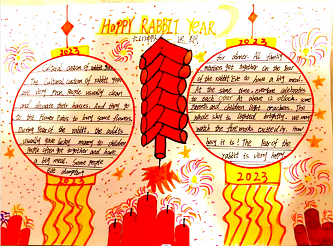 HAPPY RABBIT YEAR
2023
Cultural custom of rabbit year
The Cultural custom of rabbit year
are very People usually clean
and decorate their houses. And they go
to the flower fairs to buy some flowers.
During Year of the rabbit. the adults
usually give lucky money to children
People often get together and have
big meal. Some people
2023
2023
For dinner All family
members get together on the
of the rabbit Eve to have a big meal.
At the same time, everyone celebrates
to each other At above 12 o'clock some
parents and children light crackers The
whole sky is lighted brightly. we may
watch the fire works excitedly. How
busy it is! The Year of the
rabbit is very happy
2023